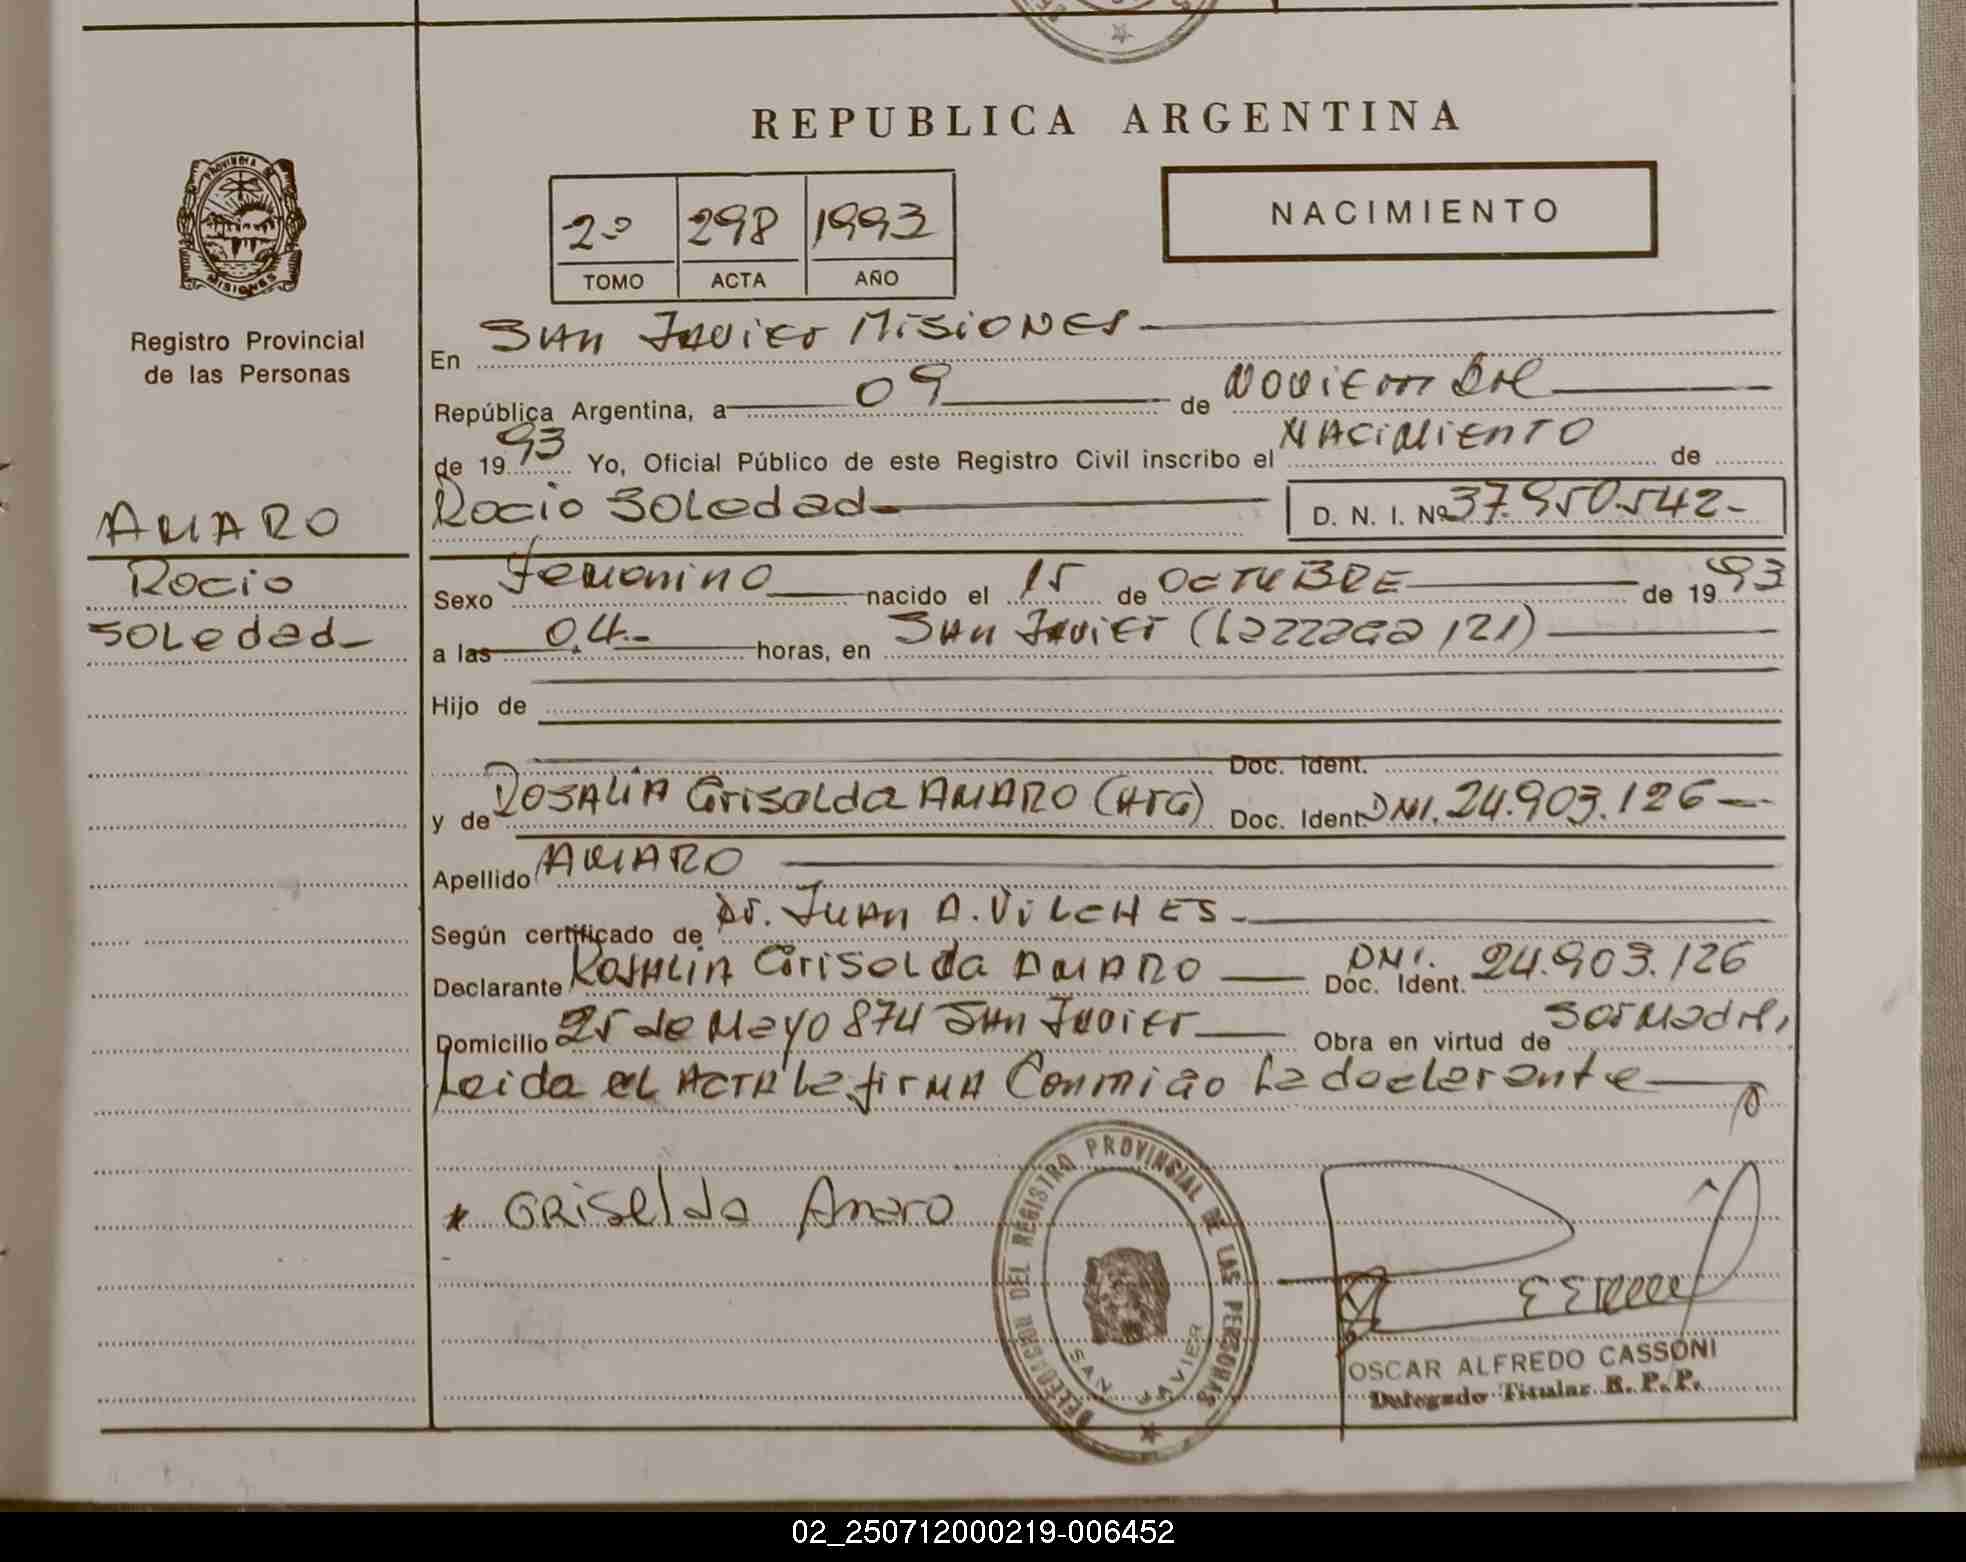 REPUBLICA ARGENTINA
PROVINCIA DE MISIONES
Registro Provincial
de las Personas
2º 298 1993
TOMO ACTA AÑO
NACIMIENTO
En San Javier Misiones
República Argentina, a 09 de Noviembre
de 1993 Yo, Oficial Público de este Registro Civil inscribo el Nacimiento de
Rocio Soledad D. N. I. Nº 37.950.542-
AMARO
Rocio
Soledad-
Sexo Femenino nacido el 15 de OCTUBRE de 1993
a las 04- horas, en San Javier (Lazzaga 121)
Hijo de
Doc. Ident.
y de Rosalia Griselda AMARO (ARG) Doc. Ident. DNI. 24.903.126-
Apellido AMARO
Según certificado de Dr. Juan A. Vilches-
Declarante Rosalia Griselda AMARO Doc. Ident. DNI. 24.903.126
Domicilio 25 de Mayo 874 San Javier Obra en virtud de ser Madre,
Leida el Acta la firma Conmigo La declarante
* GRiselda Amaro
DELEGACION DEL REGISTRO PROVINCIAL DE LAS PERSONAS
SAN JAVIER
OSCAR ALFREDO CASSONI
Delegado Titular R. P. P.
02_250712000219-006452